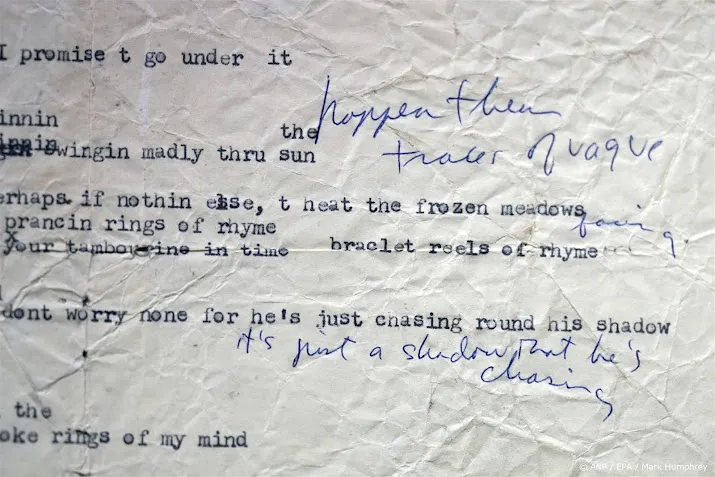 I promise t go under it
innin
the
swingin madly thru sun
happen then
traces of vague
erhaps if nothin else, t heat the frozen meadows
facing
prancin rings of rhyme
your tambourine in time
braclet reels of rhyme
dont worry none for he's just chasing round his shadow
it's just a shadow that he's
chasing
the
oke rings of my mind
© ANP / EPA / Mark Humphrey